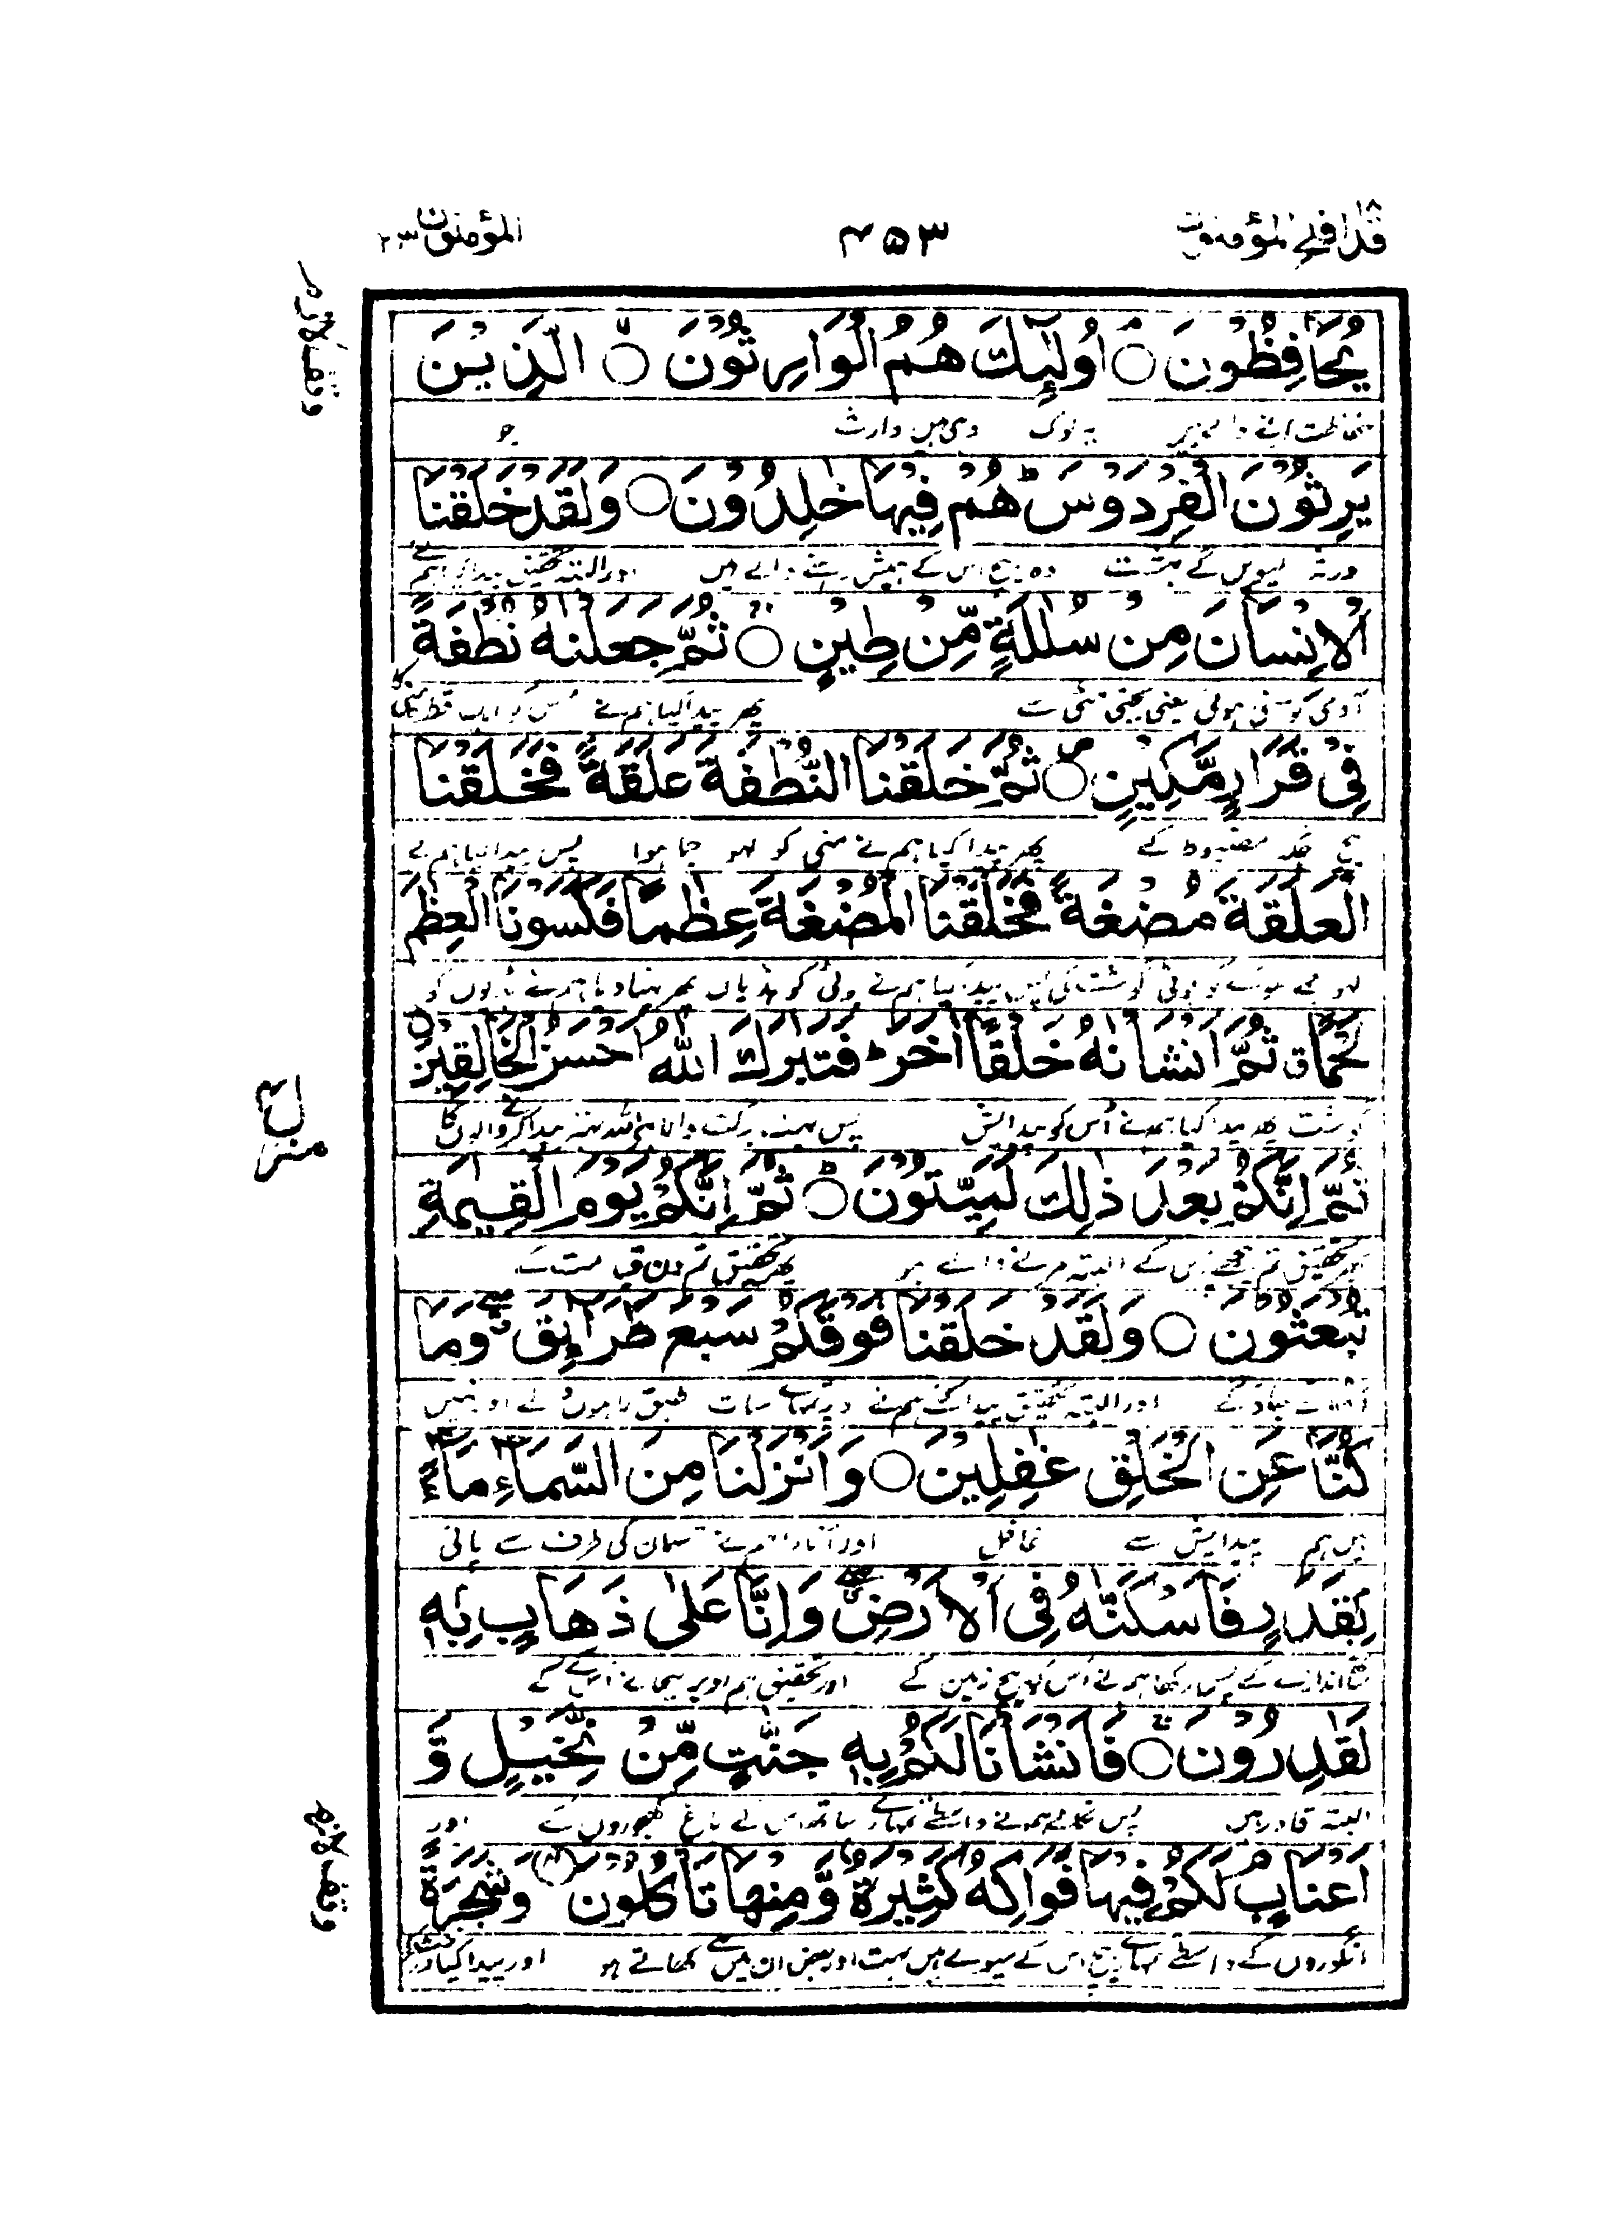 قد افلح المؤمنون ١٨
٤٥٣
المؤمنون ٢٣
وقف لازم
يُحَافِظُونَ ○ اُولٰٓئِكَ هُمُ الْوَارِثُونَ ○ الَّذِيْنَ
یہ لوگ وہی ہیں وارث جو
يَرِثُوْنَ الْفِرْدَوْسَ ؕ هُمْ فِيْهَا خٰلِدُوْنَ ○ وَلَقَدْ خَلَقْنَا
ورثہ لیویں گے بہشت وہ بیچ اس کے ہمیش رہنے والے ہیں اور البتہ تحقیق پیدا کیا ہم نے
الْاِنْسَانَ مِنْ سُلٰلَةٍ مِّنْ طِيْنٍ ○ ثُمَّ جَعَلْنٰهُ نُطْفَةً
آدمی کو سنی ہوئی یعنی بجتی مٹی سے پھر پیدا کیا ہم نے اُس کو ایک قطرہ
فِيْ قَرَارٍ مَّكِيْنٍ ○ ثُمَّ خَلَقْنَا النُّطْفَةَ عَلَقَةً فَخَلَقْنَا
بیچ جگہ مضبوط کے پھر پیدا کیا ہم نے منی کو لہو جما ہوا پس پیدا کیا ہم نے
الْعَلَقَةَ مُضْغَةً فَخَلَقْنَا الْمُضْغَةَ عِظٰمًا فَكَسَوْنَا الْعِظٰمَ
لہو جمے ہوئے کو بوٹی گوشت کی پس پیدا کیا ہم نے بوٹی کو ہڈیاں پھر پہنا دیا ہم نے ہڈیوں کو
لَحْمًا ق ثُمَّ اَنْشَاْنٰهُ خَلْقًا اٰخَرَ ؕ فَتَبٰرَكَ اللّٰهُ اَحْسَنُ الْخَالِقِيْنَ
گوشت پھر پیدا کیا ہم نے اُس کو پیدائش پس بہت برکت والا ہے اللہ بہتر پیدا کرنے والوں کا
منزل ٤
ثُمَّ اِنَّكُمْ بَعْدَ ذٰلِكَ لَمَيِّتُوْنَ ○ ثُمَّ اِنَّكُمْ يَوْمَ الْقِيٰمَةِ
پھر تحقیق تم پیچھے اس کے البتہ مرنے والے ہو پھر تحقیق تم دن قیامت کے
تُبْعَثُوْنَ ○ وَلَقَدْ خَلَقْنَا فَوْقَكُمْ سَبْعَ طَرَآئِقَ وَمَا
اٹھائے جاؤ گے اور البتہ تحقیق پیدا کئے ہم نے اوپر تمہارے سات طبق راہوں کے اور نہیں
كُنَّا عَنِ الْخَلْقِ غٰفِلِيْنَ ○ وَاَنْزَلْنَا مِنَ السَّمَآءِ مَآءً
ہیں ہم پیدایش سے غافل اور اتارا ہم نے آسمان کی طرف سے پانی
بِقَدَرٍ فَاَسْكَنّٰهُ فِي الْاَرْضِ وَاِنَّا عَلٰى ذَهَابٍ بِهٖ
اندازے کے پس رکھا ہم نے اُس کو بیچ زمین کے اور تحقیق ہم اوپر لیجانے اس کے
لَقٰدِرُوْنَ ○ فَاَنْشَاْنَا لَكُمْ بِهٖ جَنّٰتٍ مِّنْ نَّخِيْلٍ وَّ
البتہ قادر ہیں پس نکالے ہم نے واسطے تمہارے ساتھ اس کے باغ کھجوروں کے اور
وقف لازم
اَعْنَابٍ لَكُمْ فِيْهَا فَوَاكِهُ كَثِيْرَةٌ وَّمِنْهَا تَاْكُلُوْنَ وَشَجَرَةً
انگوروں کے واسطے تمہارے بیچ اس کے میوے ہیں بہت اور بعض ان میں سے کھاتے ہو اور پیدا کیا درخت